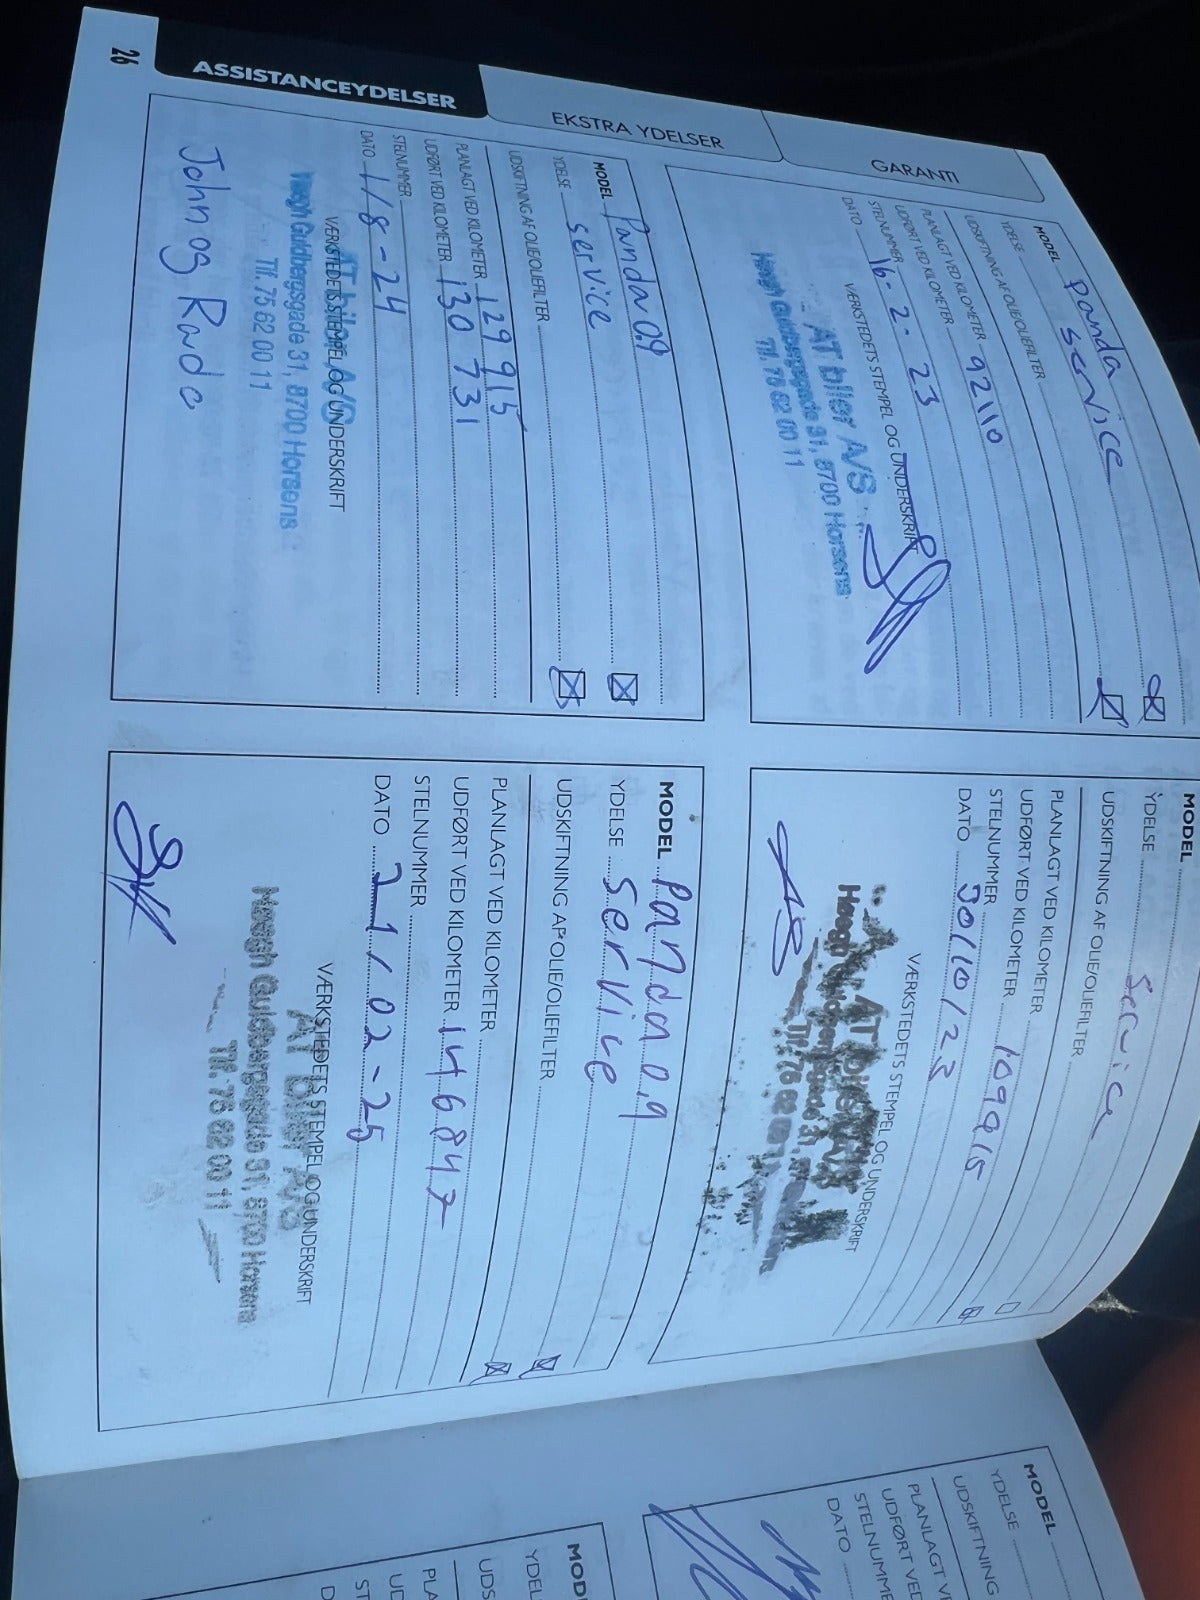 GARANTI
EKSTRA YDELSER
ASSISTANCEYDELSER
MODEL Panda
YDELSE service
UDSKIFTNING AF OLIE/OLIEFILTER
PLANLAGT VED KILOMETER
UDFØRT VED KILOMETER 92110
STELNUMMER
DATO 16-2-23
VÆRKSTEDETS STEMPEL OG UNDERSKRIFT
AT biler A/S
Høegh Guldbergsgade 31, 8700 Horsens
Tlf. 75 62 00 11
MODEL
YDELSE Service
UDSKIFTNING AF OLIE/OLIEFILTER
PLANLAGT VED KILOMETER
UDFØRT VED KILOMETER 109915
STELNUMMER
DATO 30/10/23
VÆRKSTEDETS STEMPEL OG UNDERSKRIFT
AT biler A/S
Høegh Guldbergsgade 31, 8700 Horsens
Tlf. 75 62 00 11
MODEL Panda 0.9
YDELSE service
UDSKIFTNING AF OLIE/OLIEFILTER
PLANLAGT VED KILOMETER 129915
UDFØRT VED KILOMETER 130731
STELNUMMER
DATO 1/8-24
VÆRKSTEDETS STEMPEL OG UNDERSKRIFT
AT biler A/S
Høegh Guldbergsgade 31, 8700 Horsens
Tlf. 75 62 00 11
John og
MODEL Panda 0,9
YDELSE Service
UDSKIFTNING AF OLIE/OLIEFILTER
PLANLAGT VED KILOMETER
UDFØRT VED KILOMETER 146847
STELNUMMER
DATO 21/02-25
VÆRKSTEDETS STEMPEL OG UNDERSKRIFT
AT biler A/S
Høegh Guldbergsgade 31, 8700 Horsens
Tlf. 75 62 00 11
26
MODEL
YDELSE
UDSKIFTNING
PLANLAGT VE
UDFØRT VED
STELNUMME
DATO
MODEL
YDEL
UDS
PLA
UD
ST
D